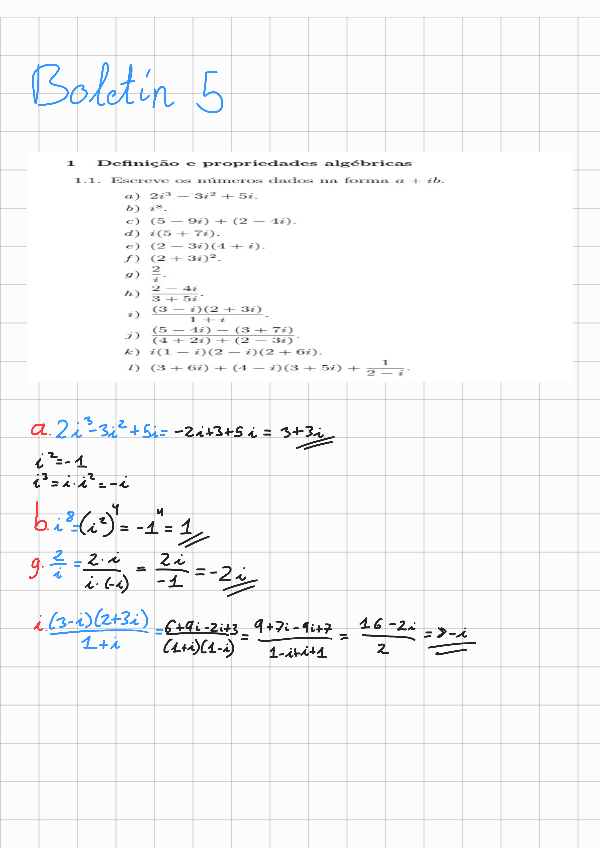 Boletín 5
1 Definição e propriedades algébricas
1.1. Escreve os números dados na forma a + ib.
a) 2i³ − 3i² + 5i.
b) i⁸.
c) (5 − 9i) + (2 − 4i).
d) i(5 + 7i).
e) (2 − 3i)(4 + i).
f) (2 + 3i)².
g) 2/i.
h) (2 − 4i)/(3 + 5i).
i) ((3 − i)(2 + 3i))/(1 + i).
j) ((5 − 4i) − (3 + 7i))/((4 + 2i) + (2 − 3i)).
k) i(1 − i)(2 − i)(2 + 6i).
l) (3 + 6i) + (4 − i)(3 + 5i) + 1/(2 − i).
a. 2i³-3i²+5i= -2i+3+5i = 3+3i
i²=-1
i³=i·i²=-i
b. i⁸=(i²)⁴ = -1⁴ = 1
g. 2/i = (2·i)/(i·(-i)) = 2i/-1 = -2i
i. ((3-i)(2+3i))/(1+i) = (6+9i-2i+3)/((1+i)(1-i)) = (9+7i-9i+7)/(1-i+i+1) = (16-2i)/2 = 8-i